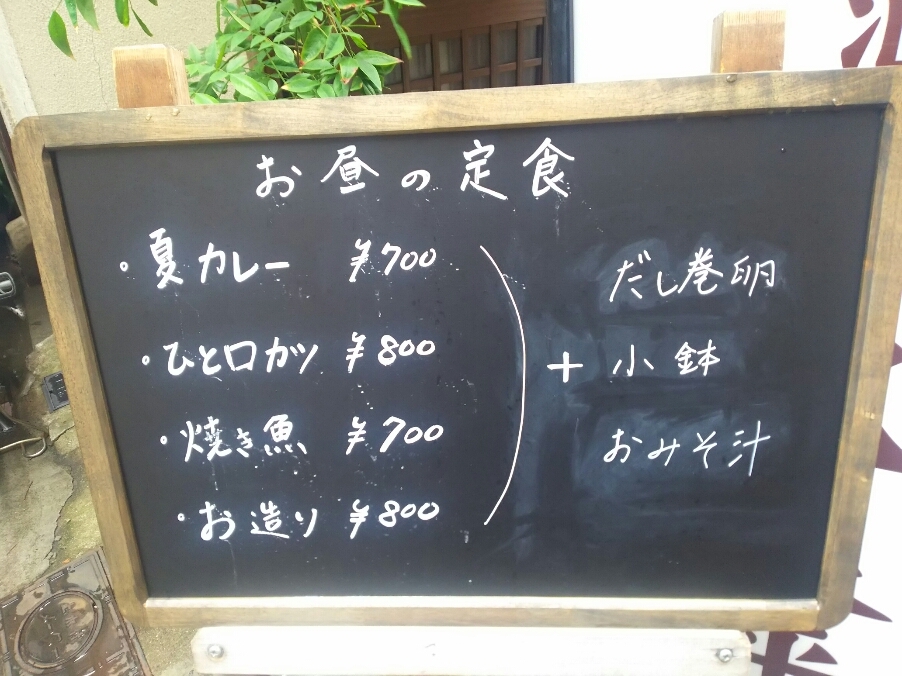 お昼の定食
・夏カレー ¥700
・ひと口カツ ¥800
・焼き魚 ¥700
・お造り ¥800
+
だし巻卵
小鉢
おみそ汁